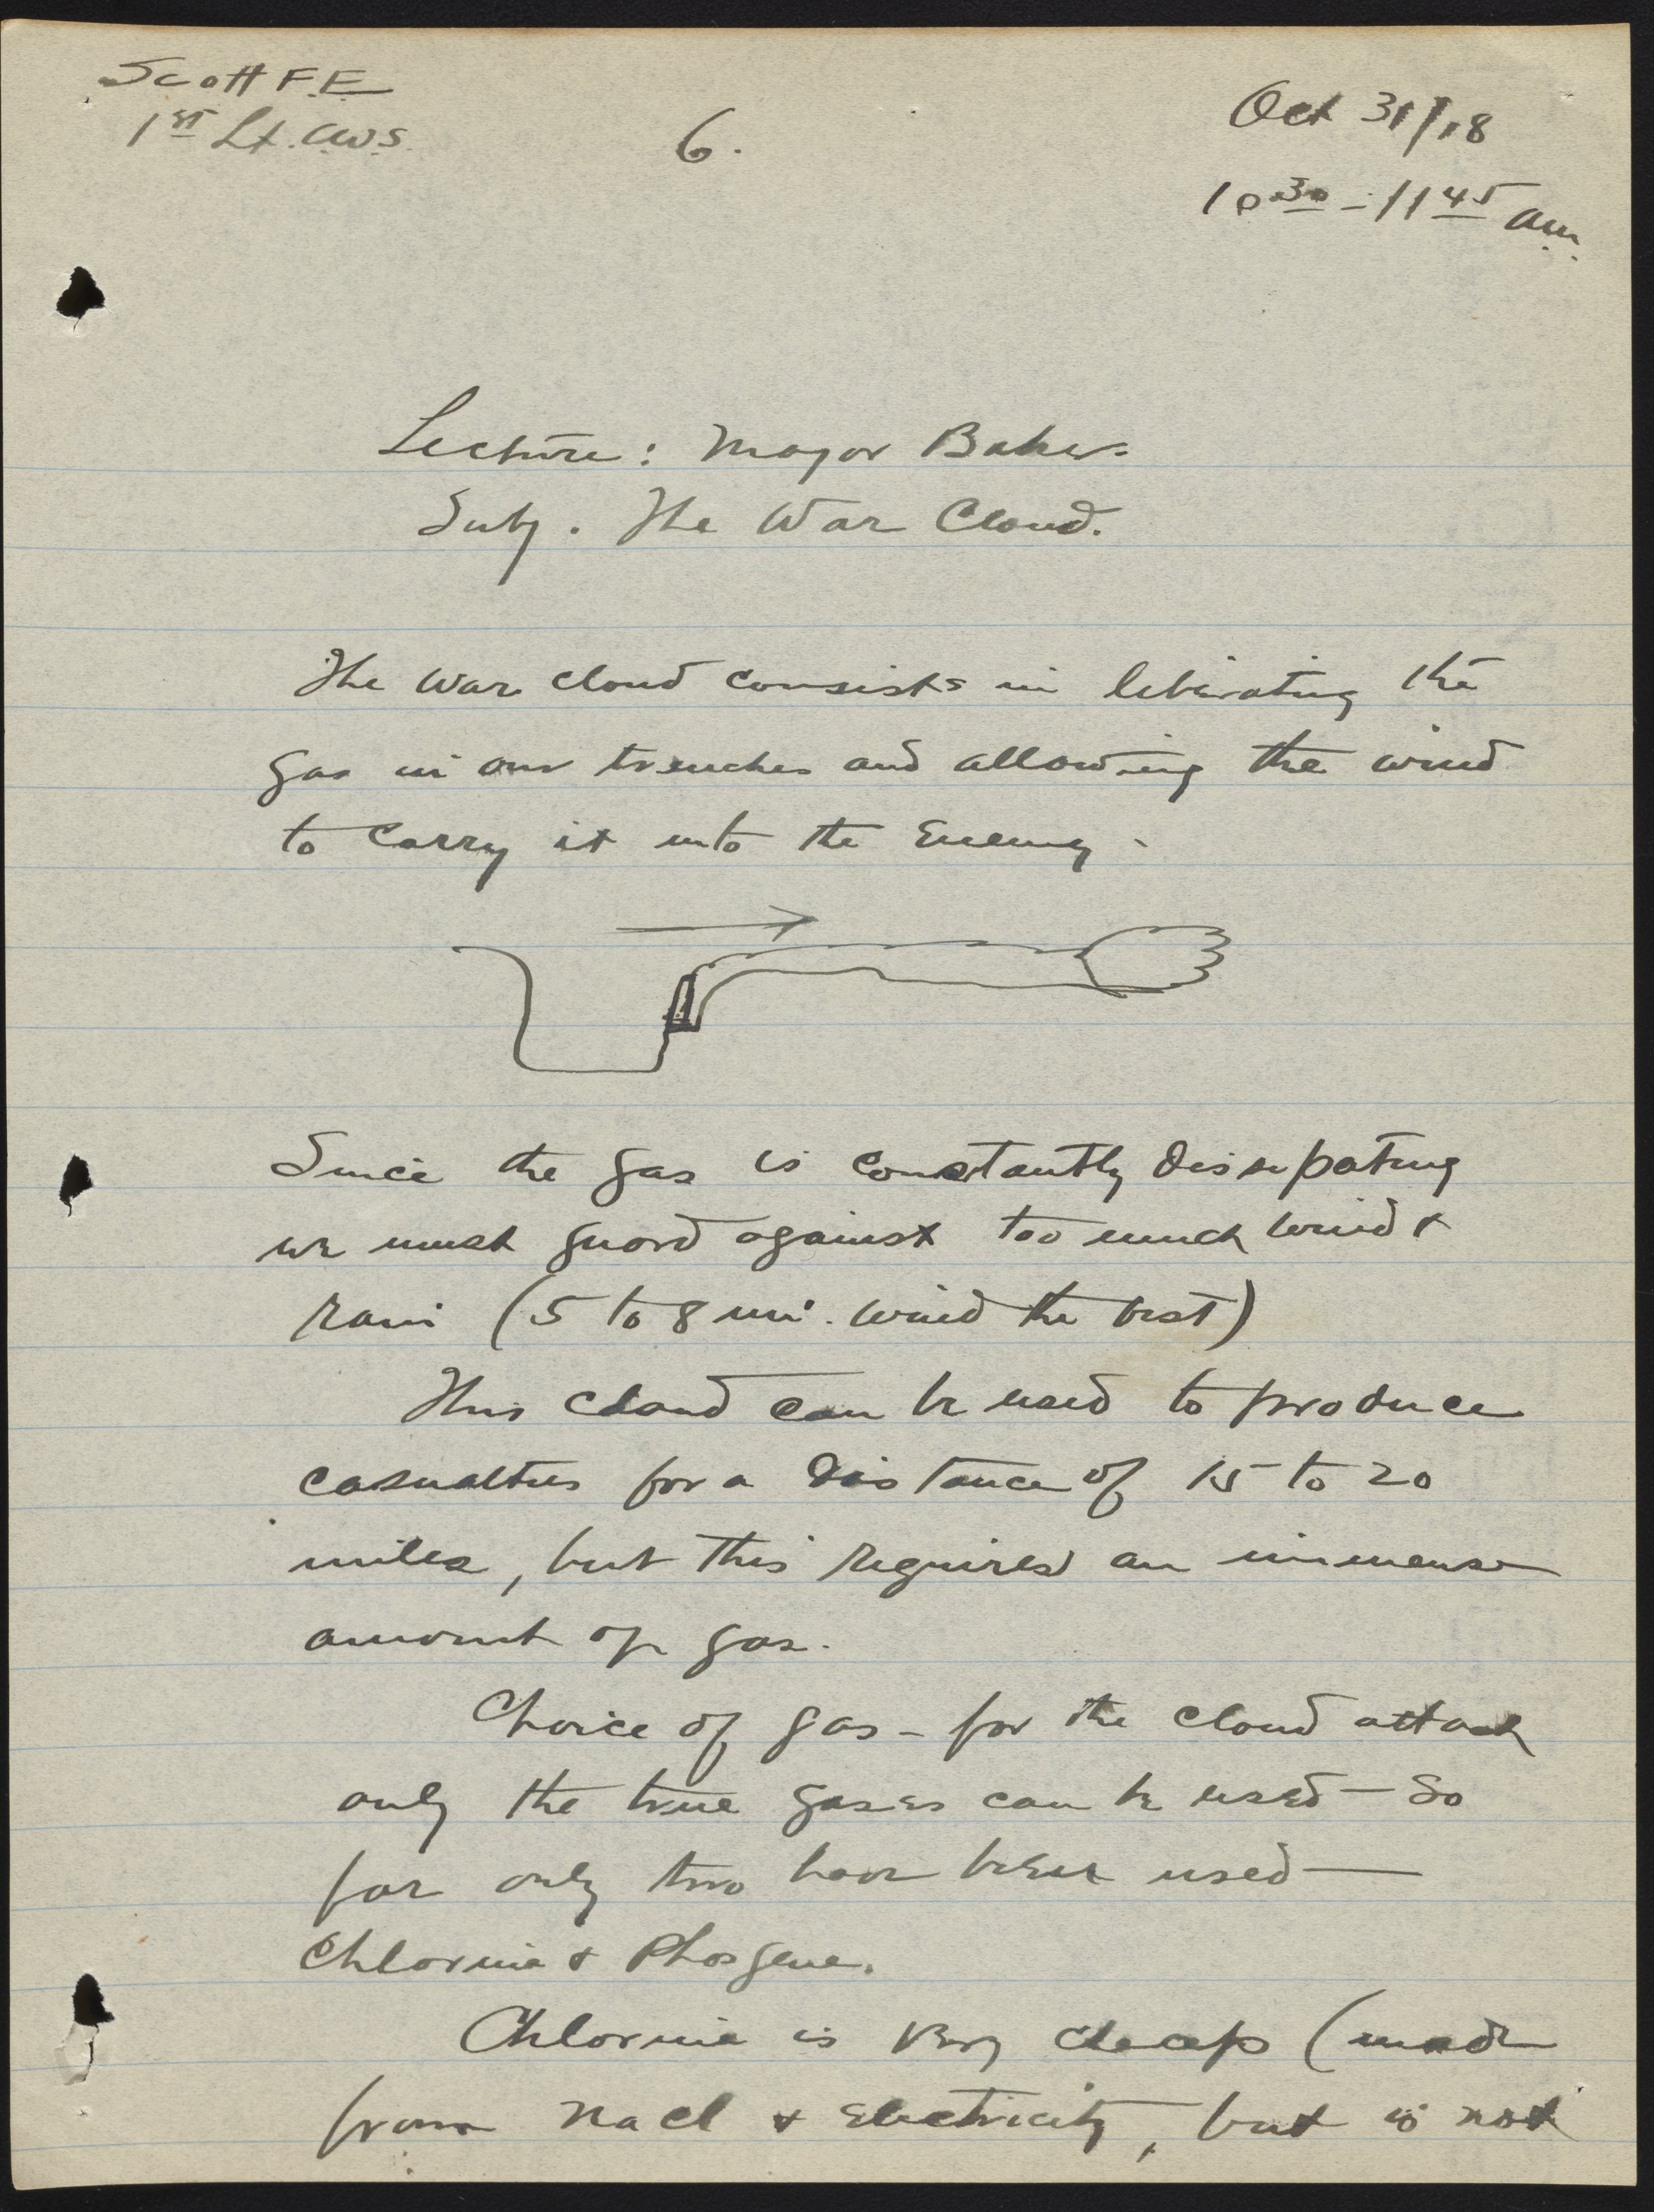 Scott F.E.
1st Lt. CWS.
6.
Oct 31/18
10 30 - 11 45 am.
Lecture: Major Baker.
Subj. The War Cloud.
The War cloud consists in liberating the
gas in our trenches and allowing the wind
to carry it into the Enemy.
Since the gas is constantly dissipating
we must guard against too much wind &
rain (5 to 8 mi. wind the best)
This cloud can be used to produce
casualties for a distance of 15 to 20
miles, but this requires an immense
amount of gas.
Choice of gas - for the cloud attack
only the true gases can be used - So
far only two have been used —
Chlorine & Phosgene.
Chlorine is very cheap (made
from NaCl & Electricity, but is not